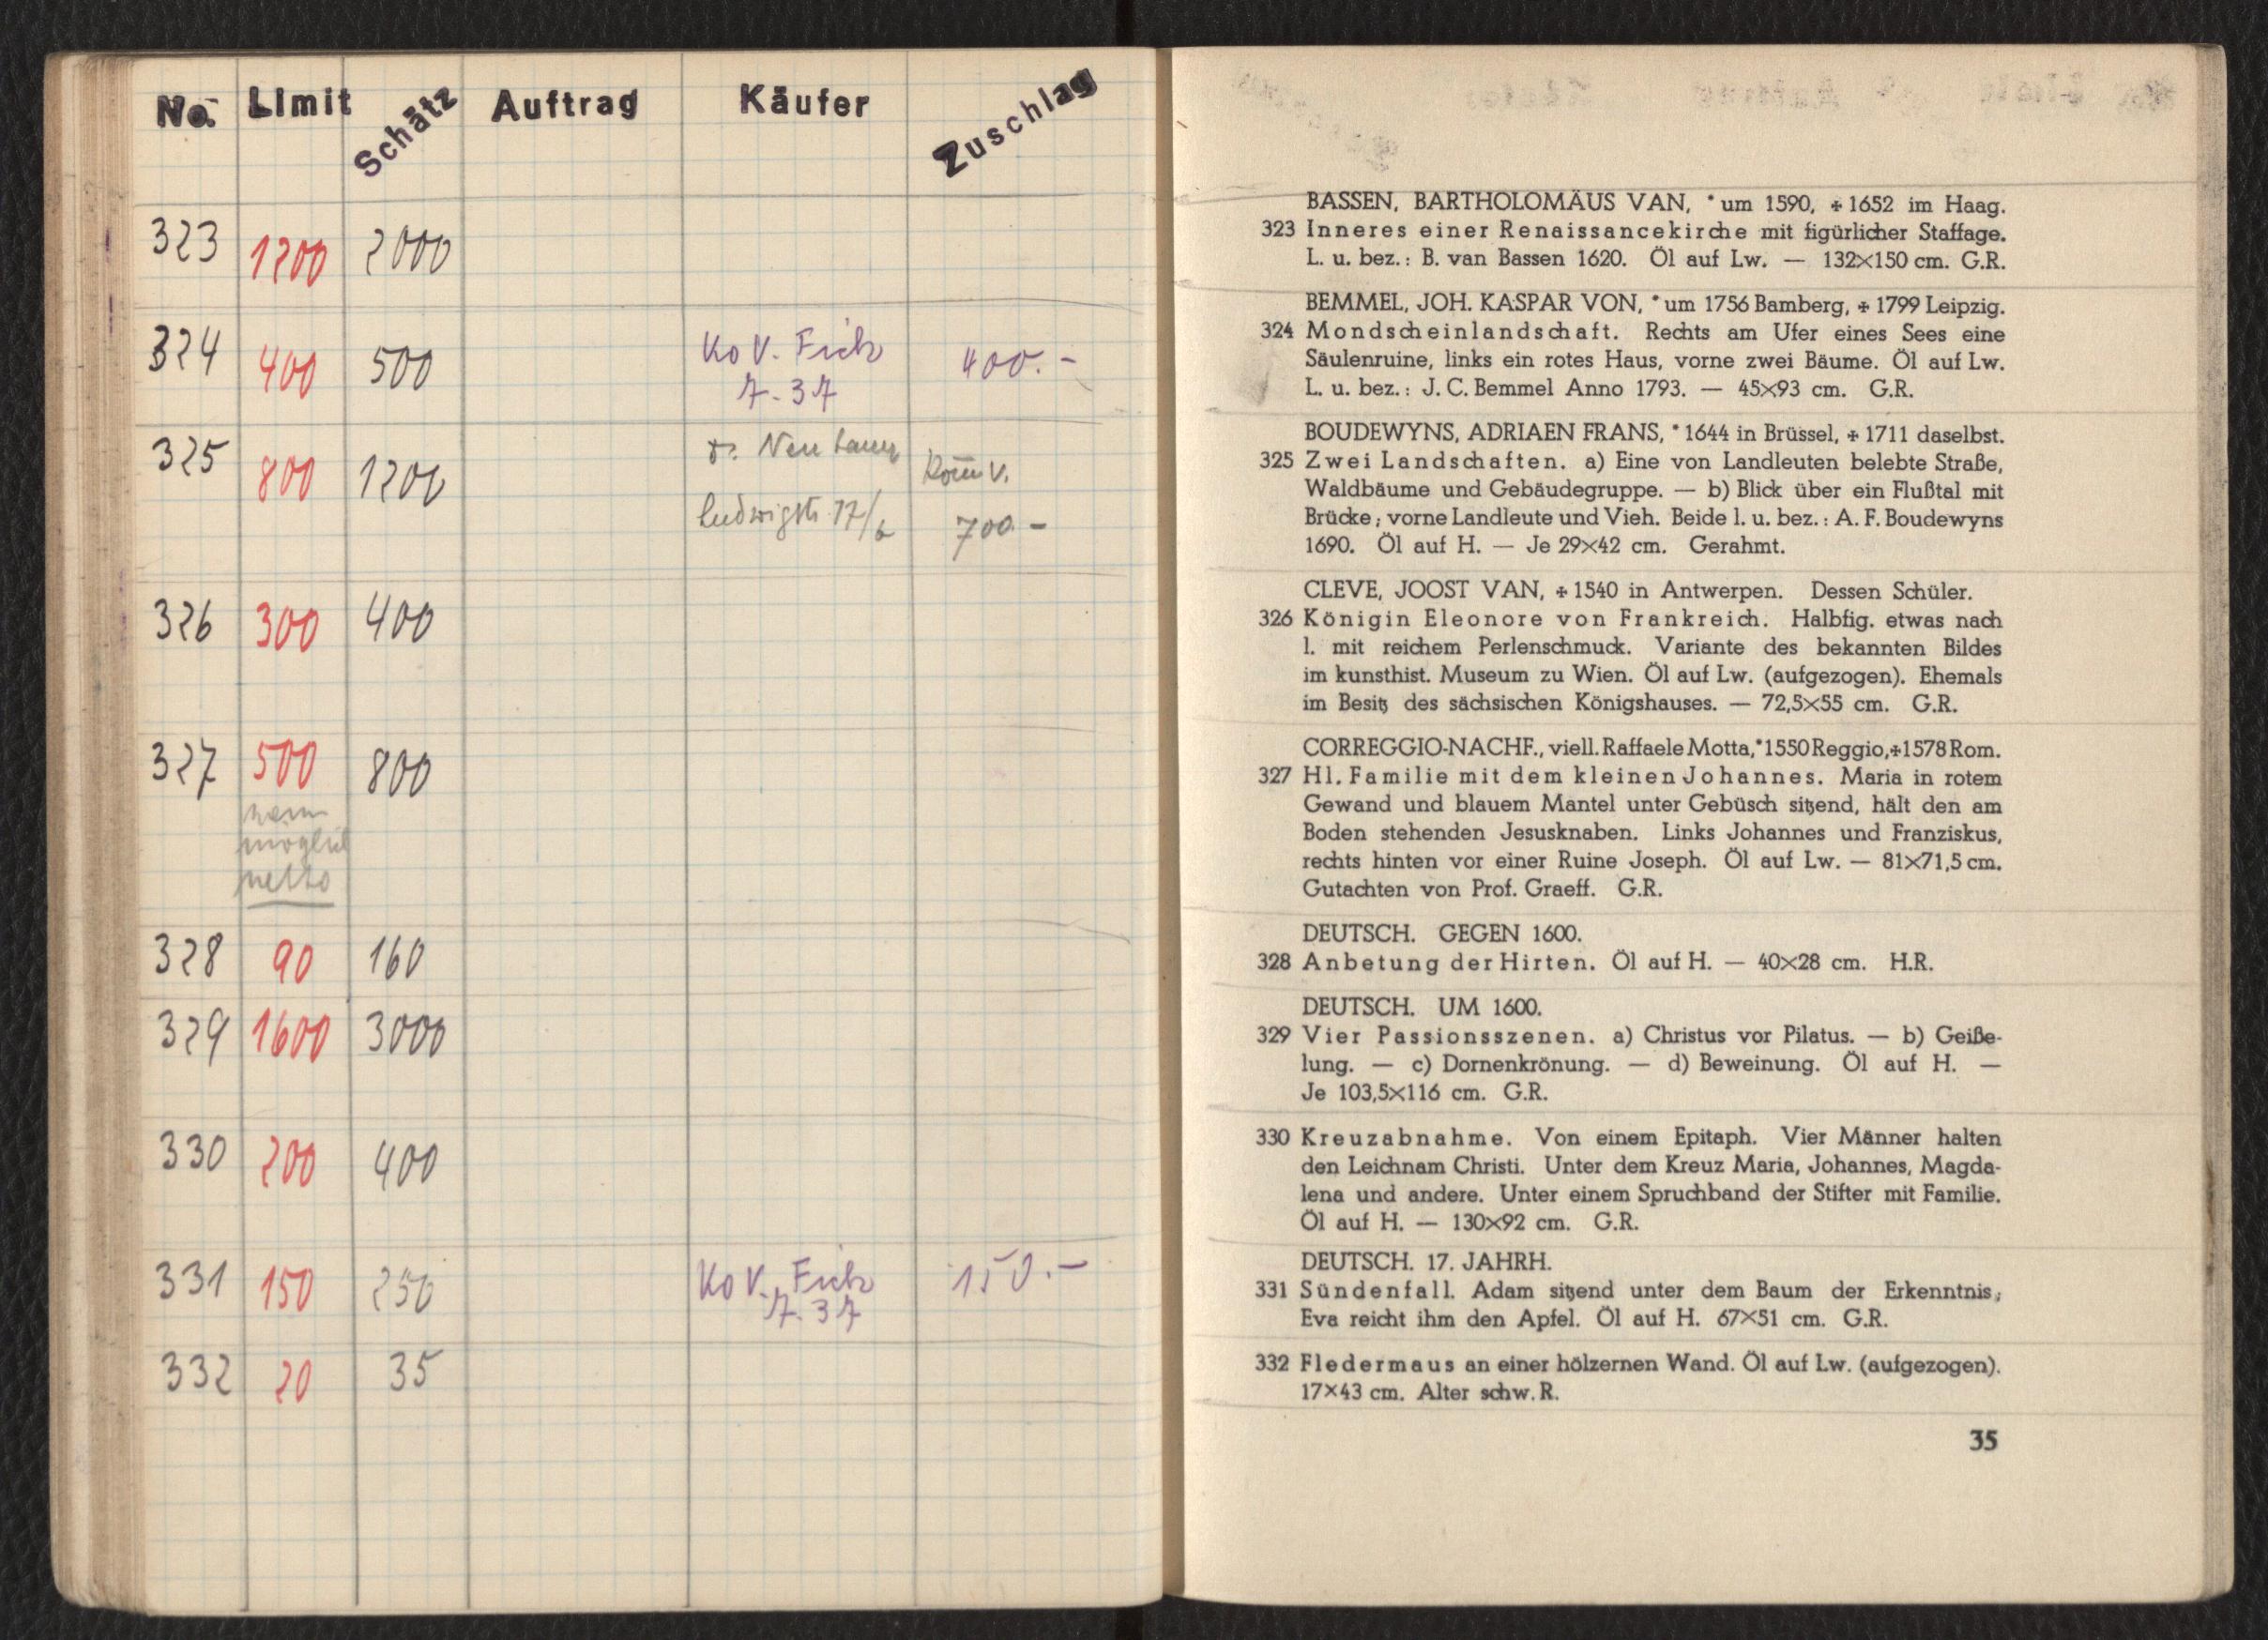 No. Limit Schätz Auftrag Käufer Zuschlag
323 1200 2000
324 400 500 Ko V. Fick 400.-
7. 37
325 800 1200 Dr. Neu
Kom V.
Ludwigstr. 17/b 700-
326 300 400
327 500 800
wenn
möglich
netto
328 90 160
329 1600 3000
330 200 400
331 150 250 Ko V. Fick 150.-
7. 37
332 20 35
BASSEN, BARTHOLOMÄUS VAN, * um 1590, ✠ 1652 im Haag.
323 Inneres einer Renaissancekirche mit figürlicher Staffage.
L. u. bez.: B. van Bassen 1620. Öl auf Lw. — 132×150 cm. G.R.
BEMMEL, JOH. KASPAR VON, * um 1756 Bamberg, ✠ 1799 Leipzig.
324 Mondscheinlandschaft. Rechts am Ufer eines Sees eine
Säulenruine, links ein rotes Haus, vorne zwei Bäume. Öl auf Lw.
L. u. bez.: J. C. Bemmel Anno 1793. — 45×93 cm. G.R.
BOUDEWYNS, ADRIAEN FRANS, * 1644 in Brüssel, ✠ 1711 daselbst.
325 Zwei Landschaften. a) Eine von Landleuten belebte Straße,
Waldbäume und Gebäudegruppe. — b) Blick über ein Flußtal mit
Brücke; vorne Landleute und Vieh. Beide l. u. bez.: A. F. Boudewyns
1690. Öl auf H. — Je 29×42 cm. Gerahmt.
CLEVE, JOOST VAN, ✠ 1540 in Antwerpen. Dessen Schüler.
326 Königin Eleonore von Frankreich. Halbfig. etwas nach
l. mit reichem Perlenschmuck. Variante des bekannten Bildes
im kunsthist. Museum zu Wien. Öl auf Lw. (aufgezogen). Ehemals
im Besitz des sächsischen Königshauses. — 72,5×55 cm. G.R.
CORREGGIO-NACHF., viell. Raffaele Motta, *1550 Reggio, ✠1578 Rom.
327 Hl. Familie mit dem kleinen Johannes. Maria in rotem
Gewand und blauem Mantel unter Gebüsch sitzend, hält den am
Boden stehenden Jesusknaben. Links Johannes und Franziskus,
rechts hinten vor einer Ruine Joseph. Öl auf Lw. — 81×71,5 cm.
Gutachten von Prof. Graeff. G.R.
DEUTSCH. GEGEN 1600.
328 Anbetung der Hirten. Öl auf H. — 40×28 cm. H.R.
DEUTSCH. UM 1600.
329 Vier Passionsszenen. a) Christus vor Pilatus. — b) Geiße-
lung. — c) Dornenkrönung. — d) Beweinung. Öl auf H. —
Je 103,5×116 cm. G.R.
330 Kreuzabnahme. Von einem Epitaph. Vier Männer halten
den Leichnam Christi. Unter dem Kreuz Maria, Johannes, Magda-
lena und andere. Unter einem Spruchband der Stifter mit Familie.
Öl auf H. — 130×92 cm. G.R.
DEUTSCH. 17. JAHRH.
331 Sündenfall. Adam sitzend unter dem Baum der Erkenntnis;
Eva reicht ihm den Apfel. Öl auf H. 67×51 cm. G.R.
332 Fledermaus an einer hölzernen Wand. Öl auf Lw. (aufgezogen).
17×43 cm. Alter schw. R.
35